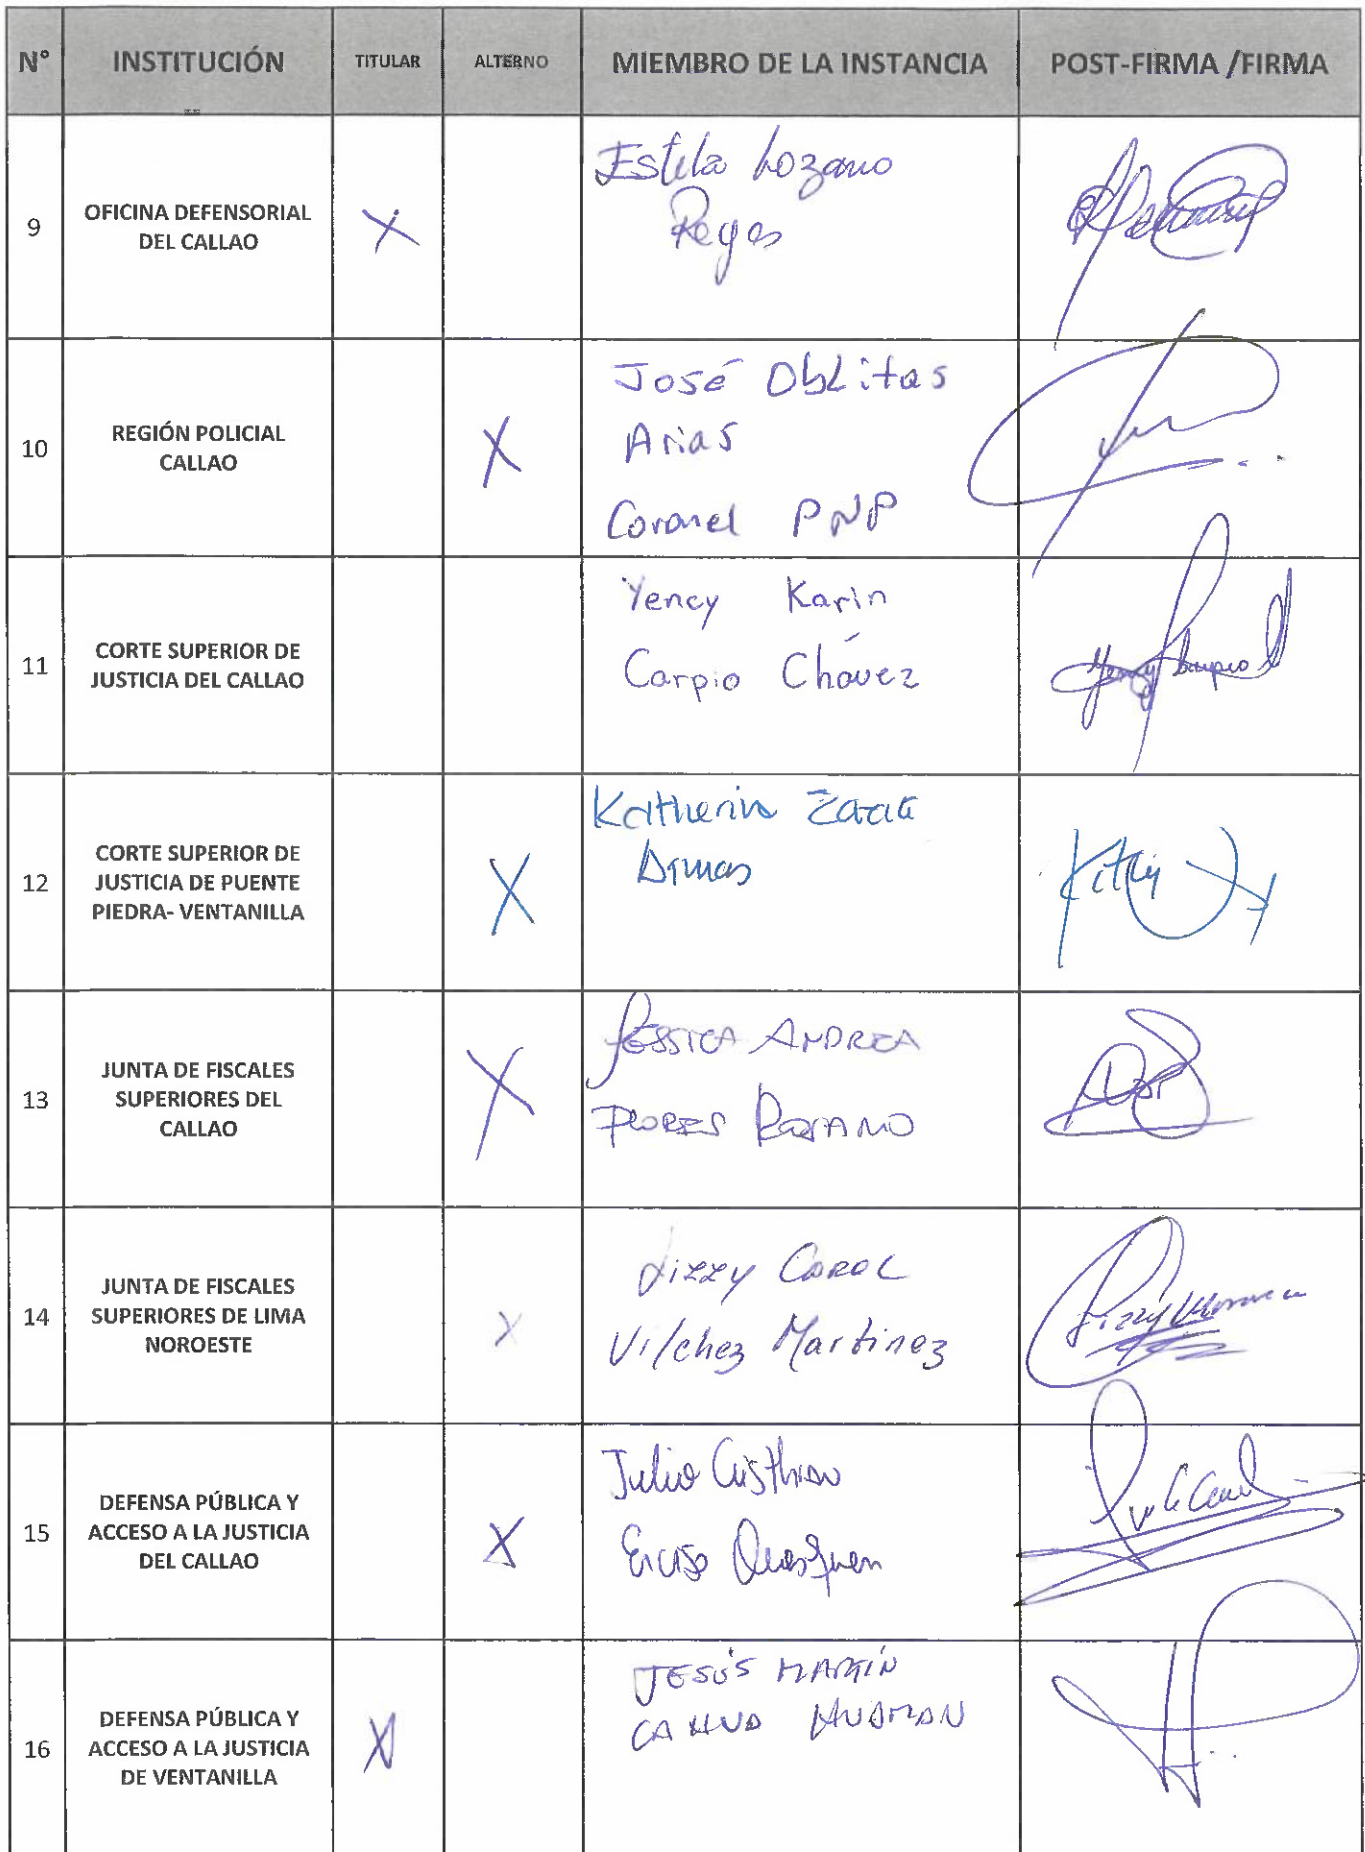 N° INSTITUCIÓN TITULAR ALTERNO MIEMBRO DE LA INSTANCIA POST-FIRMA /FIRMA
9
OFICINA DEFENSORIAL
DEL CALLAO
X
Estela Lozano
Reyes
10
REGIÓN POLICIAL
CALLAO
X
José Oblitas
Arias
Coronel PNP
11
CORTE SUPERIOR DE
JUSTICIA DEL CALLAO
Yency Karin
Carpio Chávez
Yency Carpio
12
CORTE SUPERIOR DE
JUSTICIA DE PUENTE
PIEDRA- VENTANILLA
X
Katherin Zarate
Armas
13
JUNTA DE FISCALES
SUPERIORES DEL
CALLAO
X
JESSICA ANDREA
FLORES
14
JUNTA DE FISCALES
SUPERIORES DE LIMA
NOROESTE
X
Lizzy CAROL
Vilchez Martinez
15
DEFENSA PÚBLICA Y
ACCESO A LA JUSTICIA
DEL CALLAO
X
Julio
16
DEFENSA PÚBLICA Y
ACCESO A LA JUSTICIA
DE VENTANILLA
X
JESÚS MARTÍN
CAHUA HUAMAN